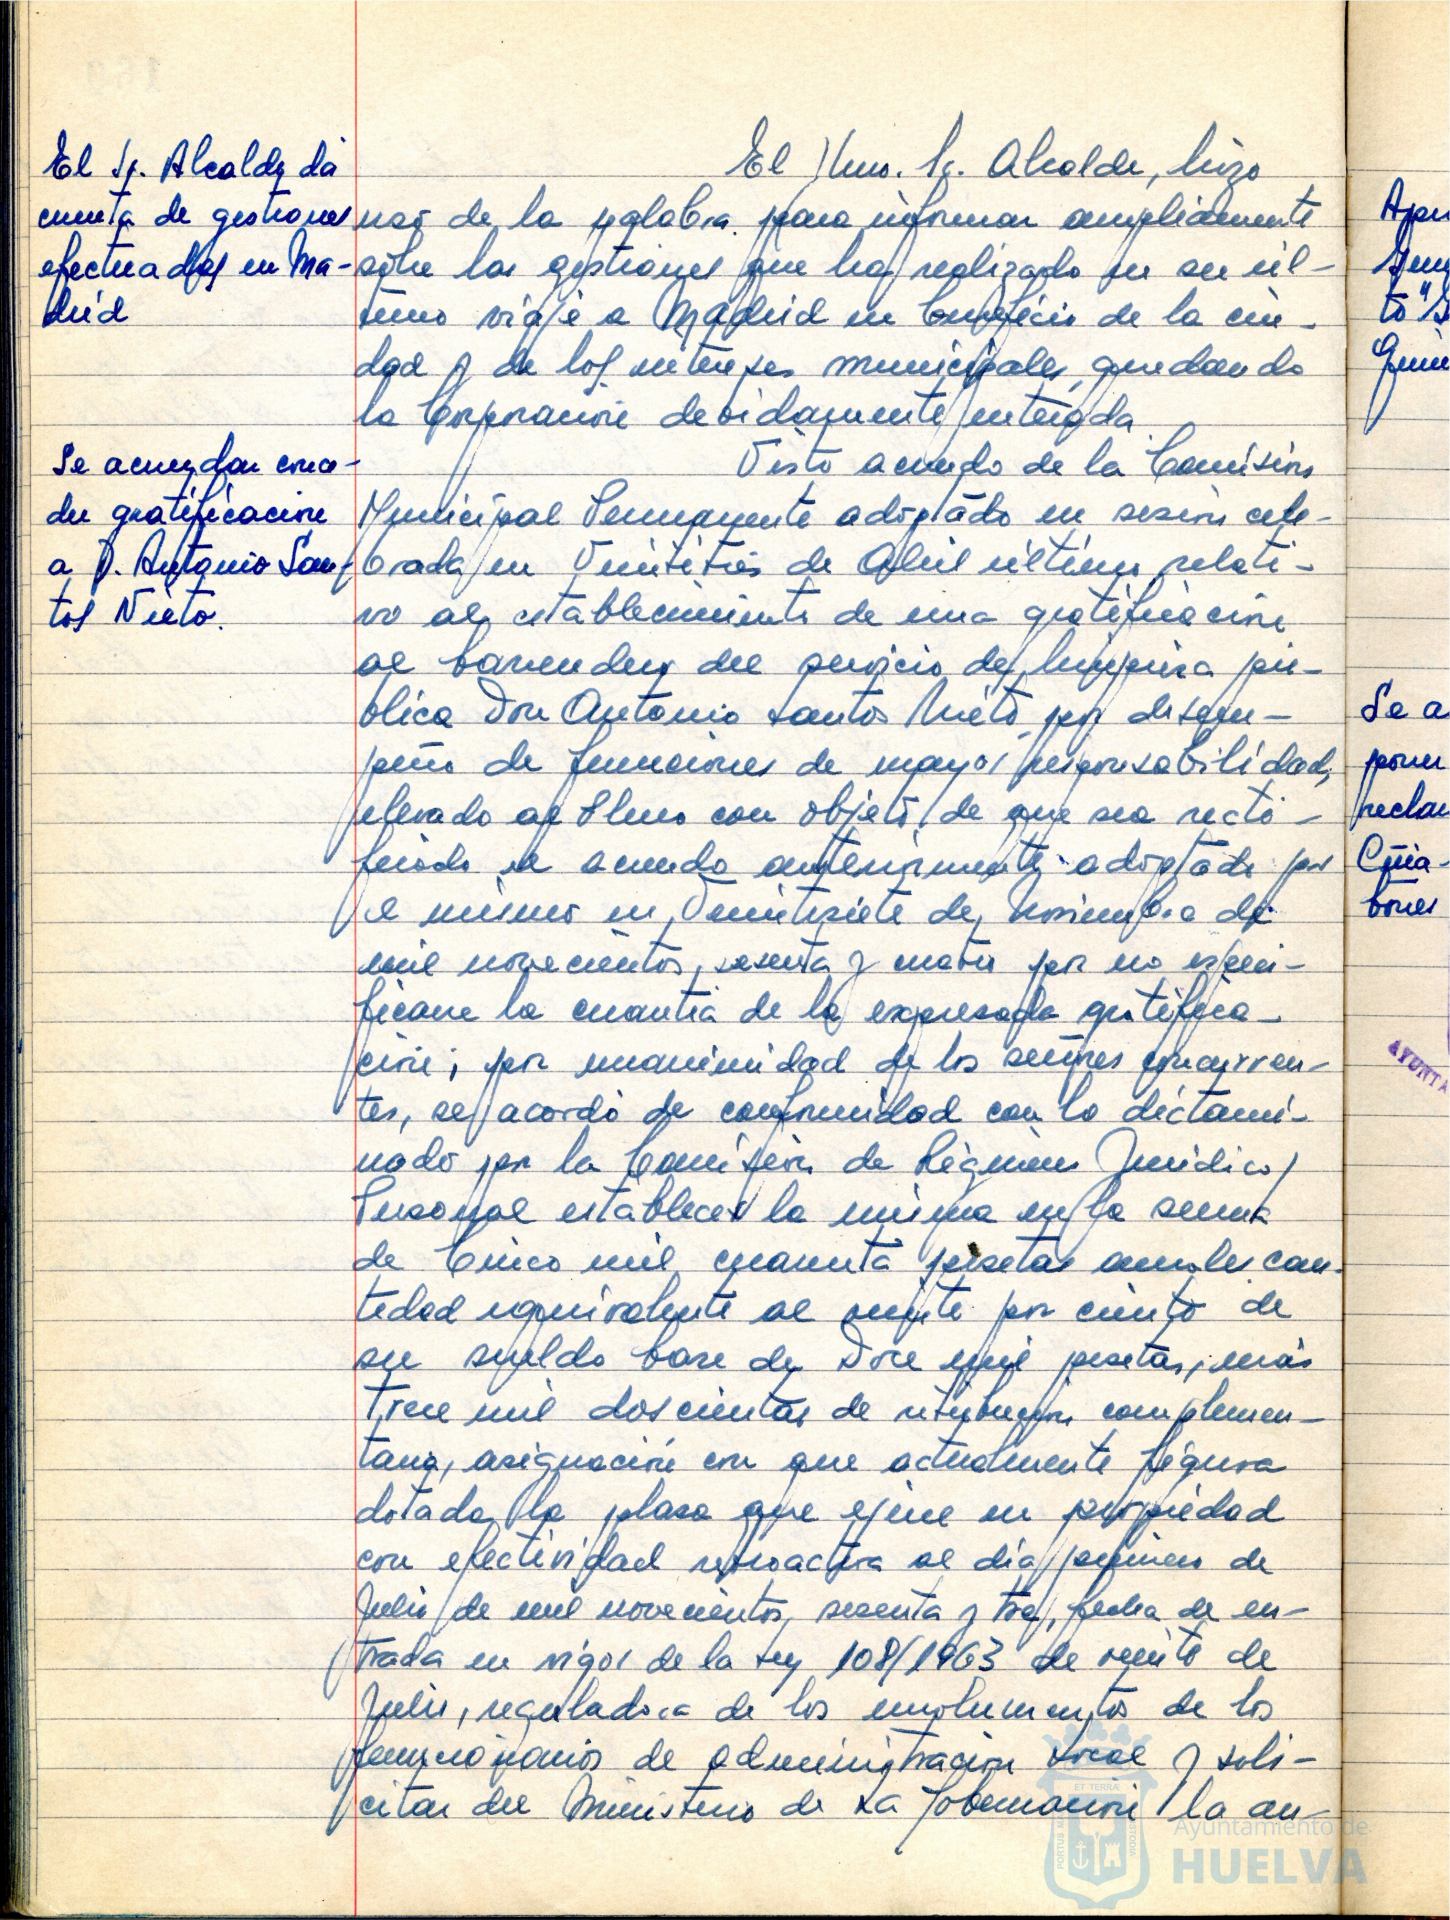 El Sr. Alcalde da
cuenta de gestiones
efectuadas en Ma-
drid
El Ilmo. Sr. Alcalde, hizo
uso de la palabra para informar ampliamente
sobre las gestiones que ha realizado en su úl-
timo viaje a Madrid en beneficio de la ciu-
dad y de los intereses municipales, quedando
la Corporación debidamente enterada
Se acuerdan conce-
der gratificación
a D. Antonio San-
tos Nieto.
Visto acuerdo de la Comisión
Municipal Permanente adoptado en sesión cele-
brada en Veintitrés de Abril último, relati-
vo al establecimiento de una gratificación
al barrendero del servicio de limpieza pú-
blica Don Antonio Santos Nieto, por desem-
peño de funciones de mayor responsabilidad,
elevado al Pleno con objeto de que sea recti-
ficado el acuerdo anteriormente adoptado por
el mismo en Veintisiete de Noviembre de
mil novecientos sesenta y cuatro por no especi-
ficarse la cuantía de la expresada gratifica-
ción; por unanimidad de los señores concurren-
tes, se acordó de conformidad con lo dictami-
nado por la Comisión de Régimen Jurídico y
Personal establecer la misma en la suma
de Cinco mil cuarenta pesetas anuales can-
tidad equivalente al veinte por ciento de
su sueldo base de Doce mil pesetas, más
Trece mil doscientas de retribución complemen-
taria, asignación con que actualmente figura
dotada la plaza que ejerce en propiedad
con efectividad retroactiva al día primero de
Julio de mil novecientos sesenta y tres, fecha de en-
trada en vigor de la Ley 108/1963 de veinte de
Julio, reguladora de los emolumentos de los
funcionarios de administración Local y soli-
citar del Ministerio de La Gobernación la au-
Se a
poner
reclam
bones
AYUNTA
ET TERRÆ
Ayuntamiento de
HUELVA